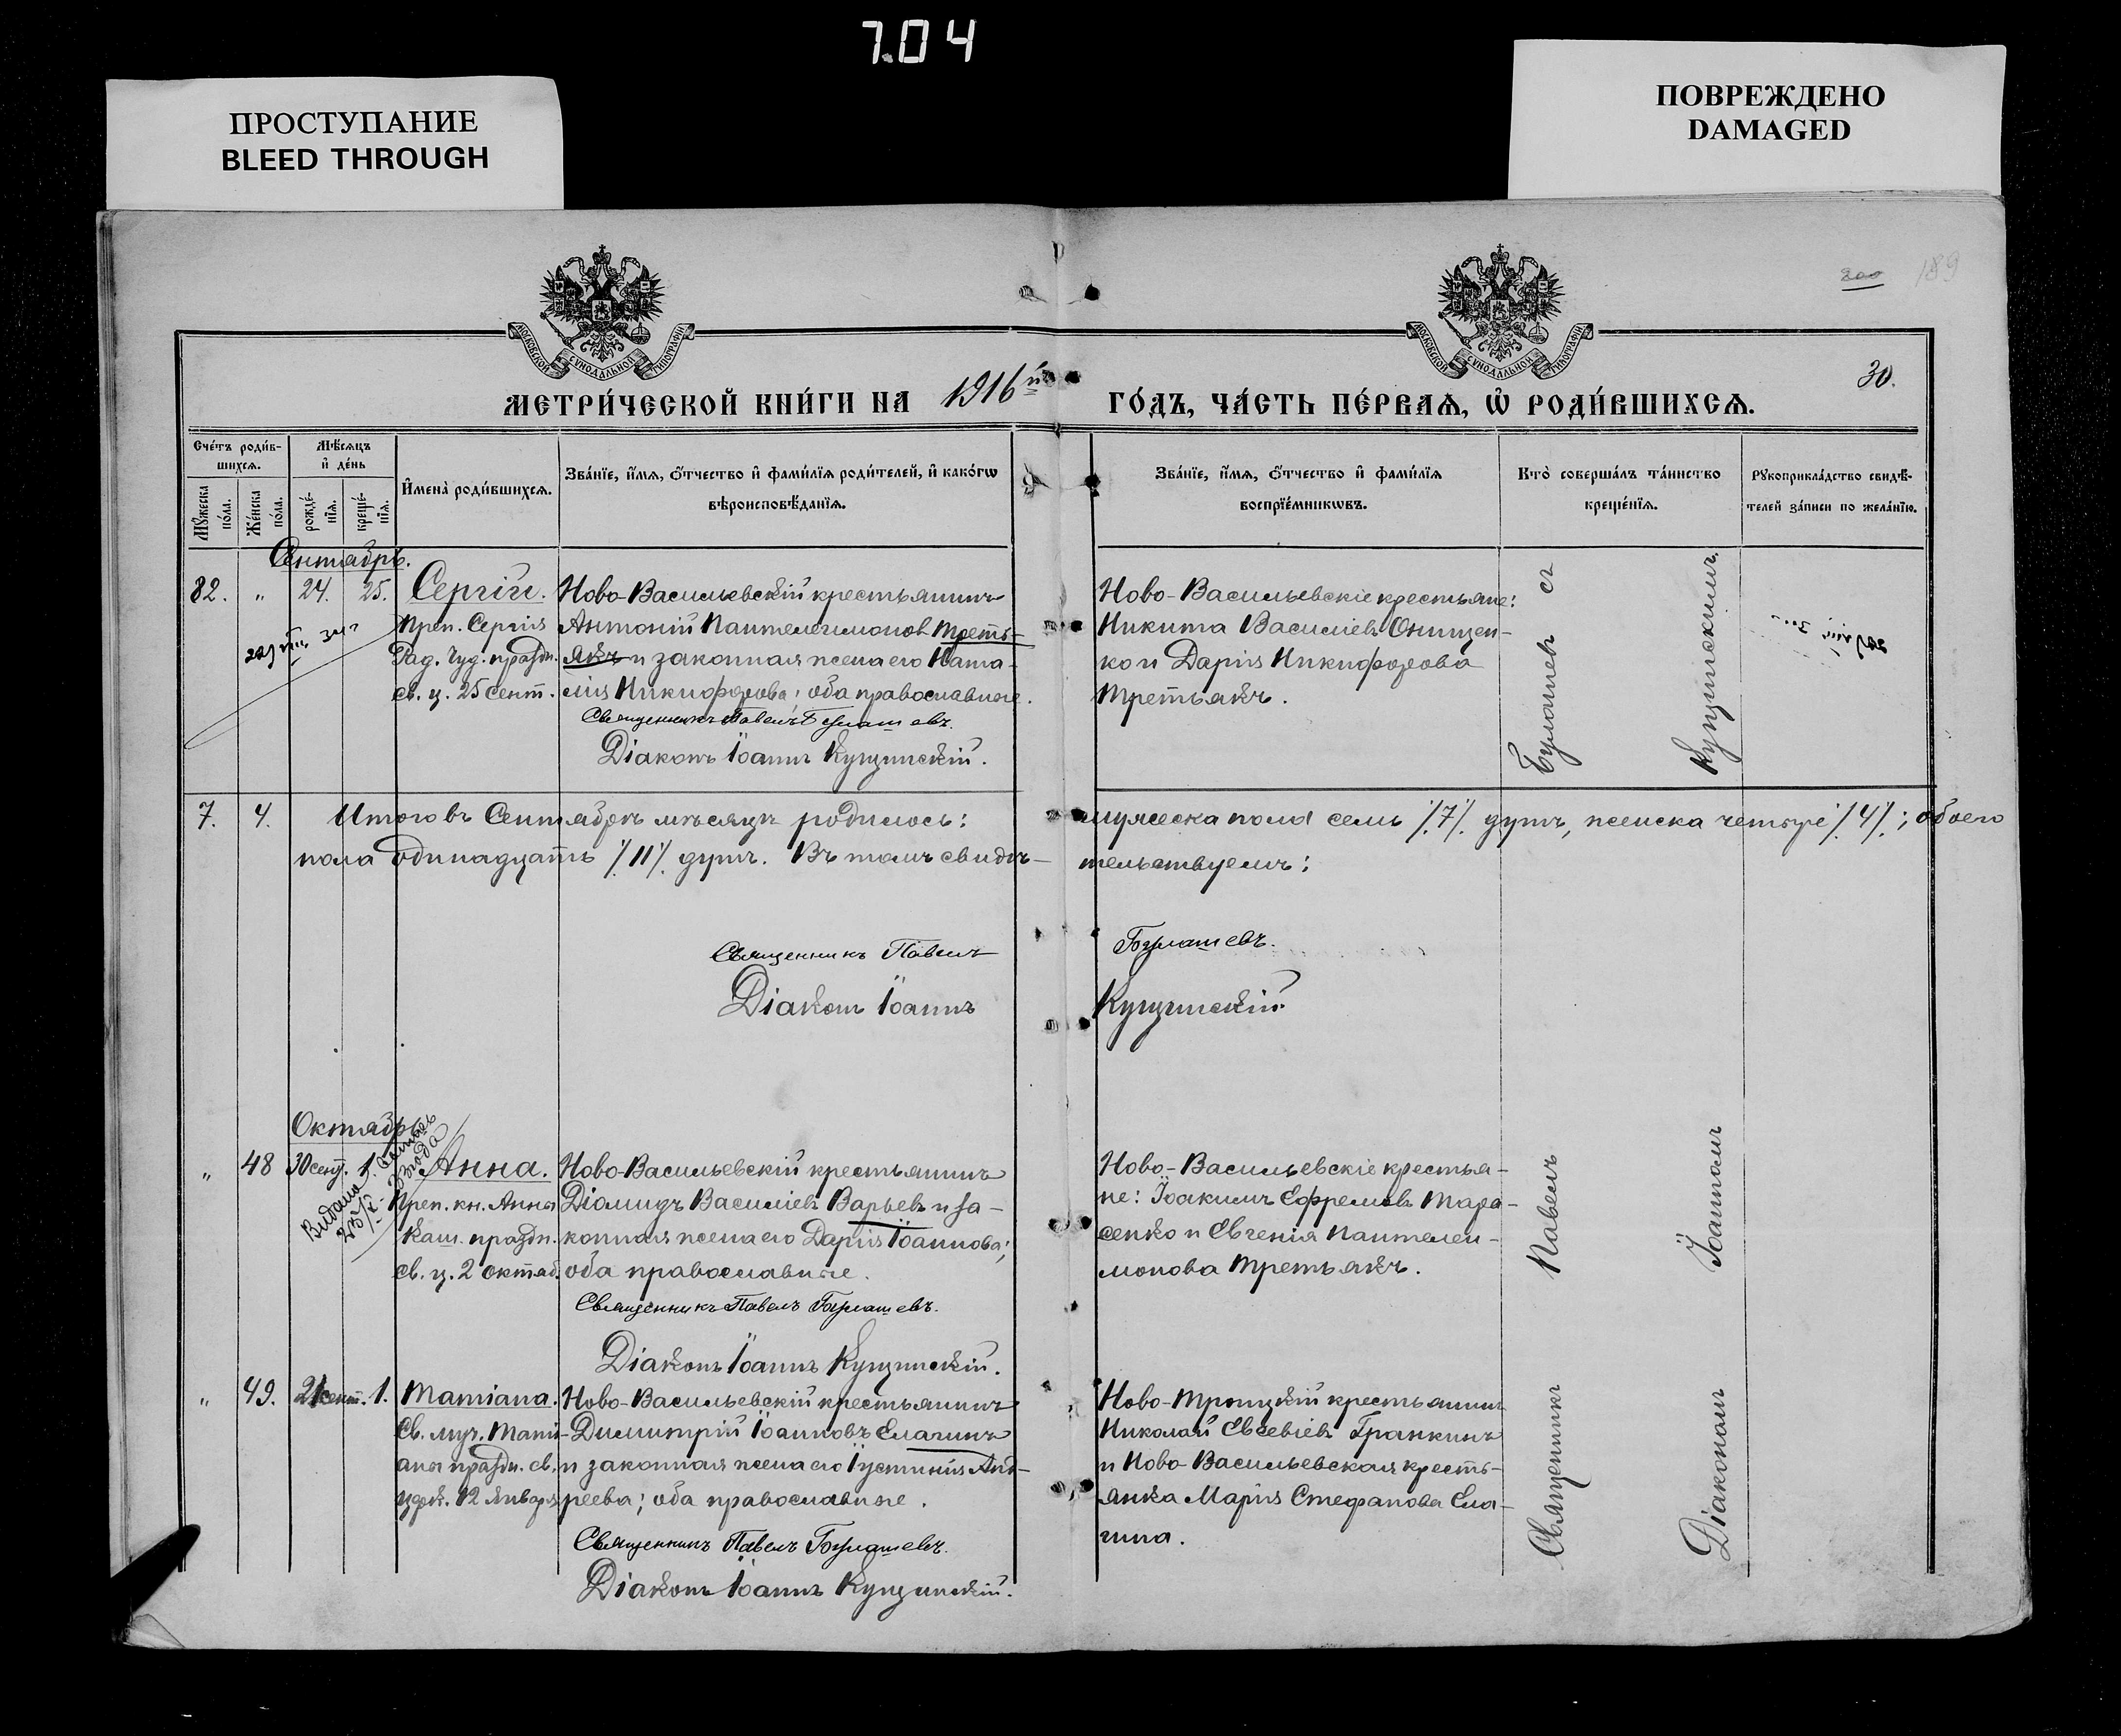 7.04
ПРОСТУПАНИЕ
BLEED THROUGH
ПОВРЕЖДЕНО
DAMAGED
МОСКОВСКОЙ СУНОДАЛЬНОЙ ТИПОГРАФІИ
МОСКОВСКОЙ СУНОДАЛЬНОЙ ТИПОГРАФІИ
200 189
30.
МЕТРИ́ЧЕСКОЙ КНИ́ГИ НА 1916й ГО́ДЪ, ЧА́СТЬ ПЕ́РВАѦ, Ѡ҆ РОДИ́ВШИХСѦ.
Сче́тъ роди́в-
шихсѧ.
Мѣ́сѧцъ
и҆ де́нь
Мꙋ́жеска
по́ла.
Же́нска
по́ла.
рожде́-
нїѧ.
креще́-
нїѧ.
И҆мена̀ роди́вшихсѧ.
Зва́нїе, и҆́мѧ, ѻ҆́тчество и҆ фами́лїѧ роди́телей, и҆ како́гѡ
вѣроисповѣ́данїѧ.
Зва́нїе, и҆́мѧ, ѻ҆́тчество и҆ фами́лїѧ
воспрїе́мникѡвъ.
Кто̀ соверша́лъ та́инство
креще́нїѧ.
Рꙋкоприкла́дство свидѣ́-
телей за́писи по жела́нїю.
Сентябрь.
82. „ 24. 25. Сергій. Ново-Васильевскій крестьянинъ
Преп. Сергія Антоній Пантелеимоновъ Треть-
Рад. Чуд. праздн. якъ и законная жена его Ната-
св. ц. 25 Сент. лія Никифорова; оба православные.
Священникъ Павелъ Булашевъ.
Діаконъ Іоаннъ Кущинскій.
Ново-Васильевскіе крестьяне:
Никита Василіевъ Онищен-
ко и Дарія Никифорова
Третьякъ.
Булашевъ съ
Кущинскимъ.
7. 4. Итого въ Сентябрѣ мѣсяцѣ родилось: мужеска пола семь /7/ душъ, женска четыре /4/; обоего
пола одинадцать /11/ душъ. Въ томъ свидѣ- тельствуемъ:
Священникъ Павелъ Булашевъ.
Діаконъ Іоаннъ Кущинскій.
Октябрь
„ 48 30 сент. 1. Анна. Ново-Васильевскій крестьянинъ
Преп. кн. Анны Діомидъ Василіевъ Варьевъ и за-
Каш. праздн. конная жена его Дарія Іоаннова;
св. ц. 2 октяб. оба православные.
Священникъ Павелъ Булашевъ.
Діаконъ Іоаннъ Кущинскій.
Ново-Васильевскіе крестья-
не: Іоакимъ Ефремовъ Тара-
сенко и Евгенія Пантелеи-
монова Третьякъ.
Павелъ
Іоанномъ
„ 49. 21 сент. 1. Татіана. Ново-Васильевскій крестьянинъ
Св. муч. Тати- Димитрій Іоанновъ Елагинъ
аны праздн. св. и законная жена его Іустинія Анд-
церк. 12 Января реева; оба православные.
Священникъ Павелъ Булашевъ.
Діаконъ Іоаннъ Кущинскій.
Ново-Троицкій крестьянинъ
Николай Евсевіевъ Гранкинъ
и Ново-Васильевская кресть-
янка Марія Стефанова Ела-
гина.
Священникъ
Діакономъ